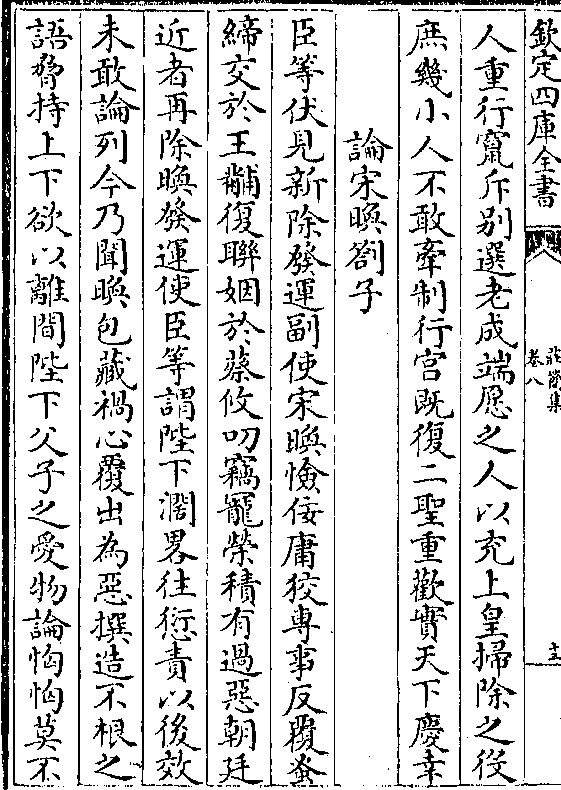 欽定四庫全書
卷八
十五
人重行竄斥别選老成端愿之人以充上皇掃除之役
庶幾小人不敢牽制行宫既復二聖重歡實天下慶幸
論宋㬇劄子
臣等伏見新除發運副使宋㬇憸佞庸狡專事反覆蚤
締交於王黼復聯姻於蔡攸叨竊寵榮積有過惡朝廷
近者再除㬇發運使臣等謂陛下濶畧往愆責以後效
未敢論列今乃聞㬇包藏禍心覆出為惡撰造不根之
語脅持上下欲以離間陛下父子之愛物論恟恟莫不